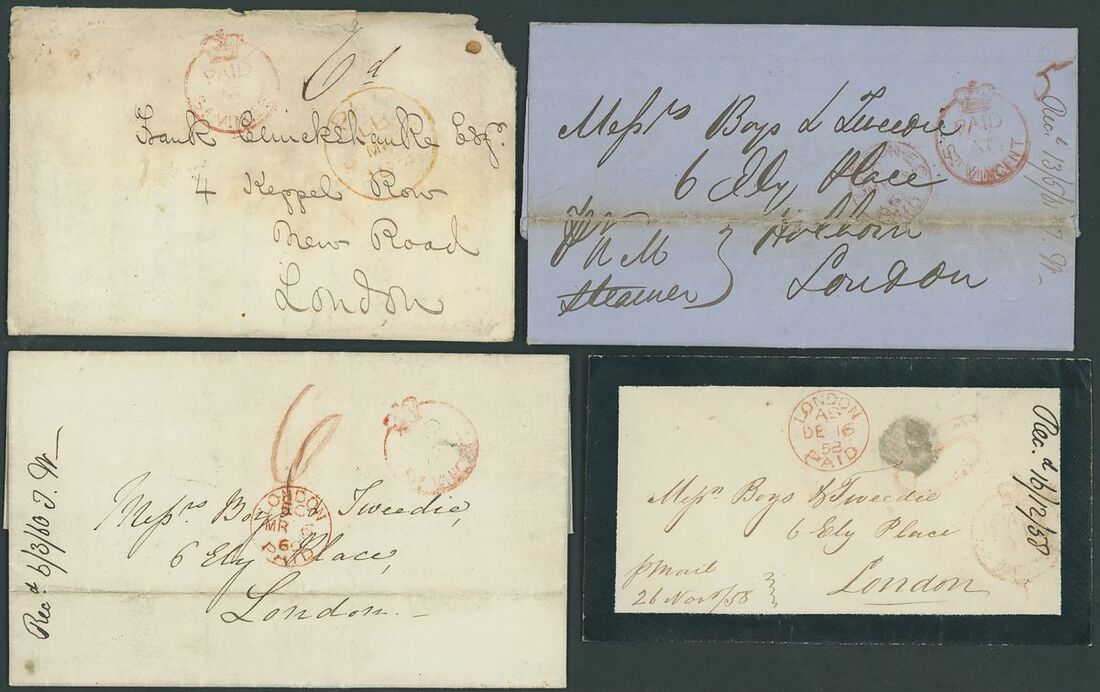 PAID
ST. VINCENT
6d
Frank Cruickshanke Esqr.
4 Keppel Row
New Road
London
Messrs Boys & Tweedie
6 Ely Place
Holborn
London
per
R M
steamer
PAID
AT
ST. VINCENT
Recd 13/6/60 T. W—
6
Messrs Boys & Tweedie,
6 Ely Place,
London.—
LONDON
MR
60
PAID
Recd 6/3/60 T. W—
LONDON
AS
DE 16
58
PAID
Messrs Boys & Tweedie
6 Ely Place
London
p Mail
26 Novr/58
Recd 16/12/58